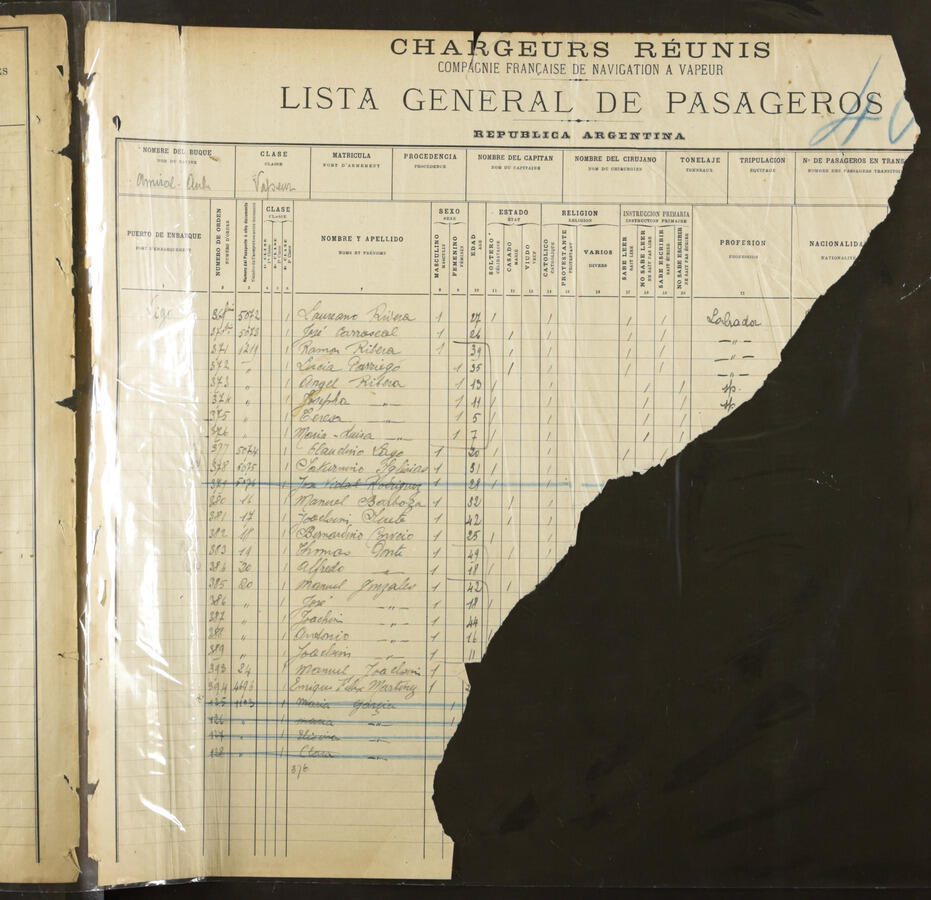 CHARGEURS RÉUNIS
COMPAGNIE FRANÇAISE DE NAVIGATION A VAPEUR
LISTA GENERAL DE PASAGEROS
REPUBLICA ARGENTINA
NOMBRE DEL BUQUE CLASE MATRICULA PROCEDENCIA NOMBRE DEL CAPITAN NOMBRE DEL CIRUJANO TONELAJE TRIPULACION Nº DE PASAGEROS EN TRANS
NOM DU NAVIRE CLASSE PORT D'ARMEMENT PROCÉDENCE NOM DU CAPITAINE NOM DU CHIRURGIEN TONNEAUX EQUIPAGE
Amiral Vapeur
PUERTO DE EMBARQUE NUMERO DE ORDEN CLASE NOMBRE Y APELLIDO SEXO MASCULINO FEMENINO EDAD ESTADO SOLTERO CASADO VIUDO RELIGION CATOLICO PROTESTANTE VARIOS INSTRUCCION PRIMARIA SABE LEER NO SABE LEER SABE ESCRIBIR NO SABE ESCRIBIR PROFESION NACIONALIDA
PORT D'EMBARQUEMENT NUMÉRO D'ORDRE CLASSE NOMS ET PRÉNOMS SEXE AGE ETAT RELIGION DIVERS INSTRUCTION PRIMAIRE PROFESSION NATIONALITÉ
Vigo 5072 1 Laureano Rivera 1 27 1 1 1 1 Labrador
5073 1 José Carrascal 1 26 1 1 1 1 — " —
371 1211 1 Ramon Ribera 1 39 1 1 1 "
372 " 1 Lucia 1 35 1 1 1 1 — " —
373 " 1 Angel Ribera 1 13 1 1 1 1
374 " 1 Josepha — " — 1 11 1 1 1 1
375 " 1 Teresa — " — 1 5 1 1 1 1
376 " 1 Maria-Luisa — " — 1 7 1 1 1 1
377 5074 1 Claudino Lago 1 20 1 1 1 1
378 5075 1 Saturnino Iglesias 1 31 1 1
379 5076 1 José Vidal Rodriguez 1 28 1 1
380 16 1 Manuel Barboza 1 32 1 1
381 17 1 1 42 1 1
382 18 1 Bernardino 1 25 1 1
383 19 1 Thomas 1 49 1 1
384 20 1 Alfredo — " — 1 18 1
385 20 1 Manuel Gonzales 1 42 1
386 " 1 José — " — 1 18 1
387 " 1 Joachim — " — 1 44
388 " 1 Antonio — " — 1 16
389 " 1 — " — 1 11
393 24 1 Manuel 1
394 4696 1 Enrique Felix Martinez 1
125 1 Maria Garcia 1
126 " 1 Maria — " — 1
127 " 1 — " —
128 " 1 Clara — " —
376